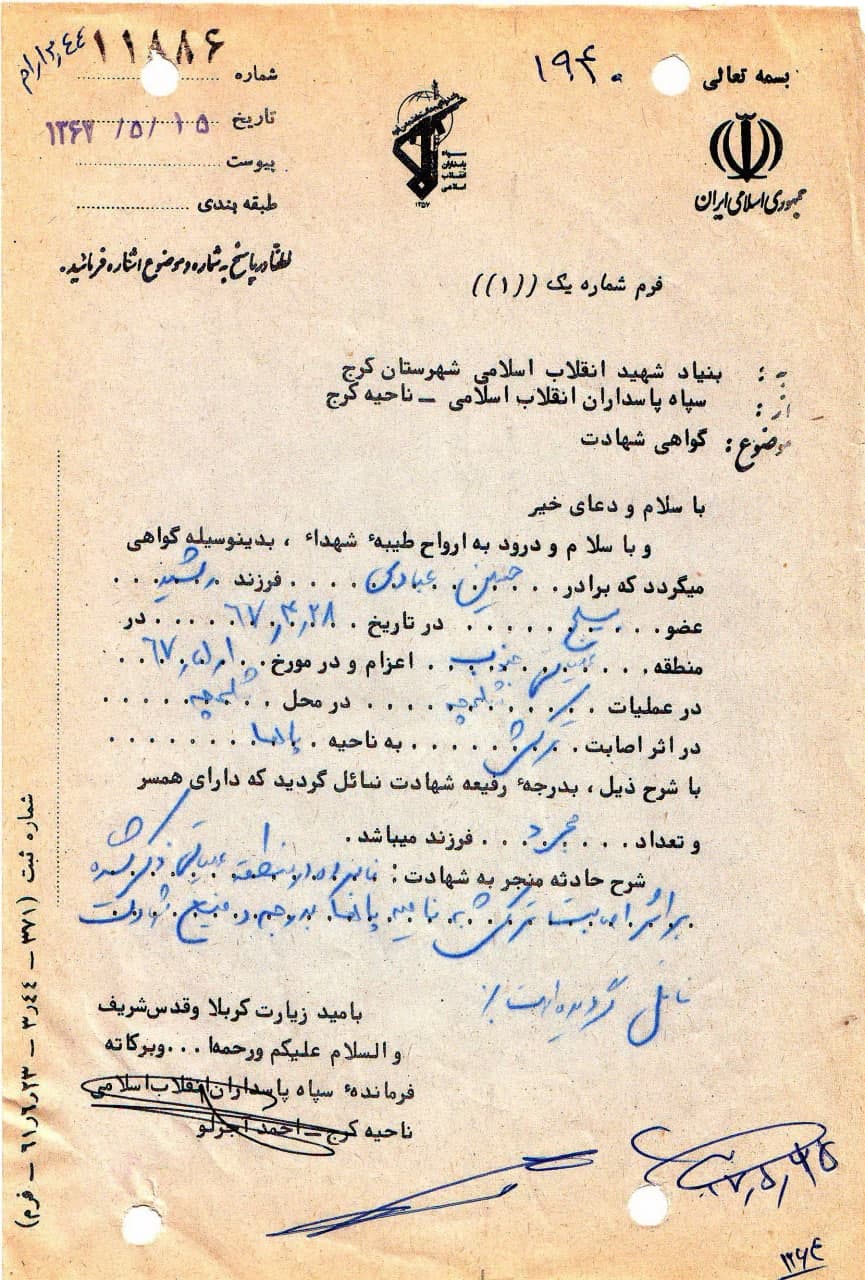 بسمه تعالی
۱۹۴۰
جمهوری اسلامی ایران
سپاه پاسداران انقلاب اسلامی
۱۳۵۷
شماره ۱۱۸۸۶
تاریخ ۱۳۶۷/۵/۱۵
پیوست
طبقه بندی
لطفا در پاسخ به شماره و موضوع اشاره فرمائید.
فرم شماره یک ((۱))
به: بنیاد شهید انقلاب اسلامی شهرستان کرج
از: سپاه پاسداران انقلاب اسلامی ــ ناحیه کرج
موضوع: گواهی شهادت
با سلام و دعای خیر
و با سلام و درود به ارواح طیبهٔ شهداء ، بدینوسیله گواهی
میگردد که برادر... حسین عبادی .... فرزند رشید...
عضو.... بسیج ..... در تاریخ . ۶۷,۴,۲۸ .... در
منطقه.... عملیاتی جنوب.. اعزام و در مورخ.. ۶۷,۵,۱ ..
در عملیات .... شلمچه .... در محل . شلمچه .....
در اثر اصابت. ترکش ..... به ناحیه . پا ......
با شرح ذیل ، بدرجهٔ رفیعه شهادت نائل گردید که دارای همسر
و تعداد.. مجرد ... فرزند میباشد .
شرح حادثه منجر به شهادت: نامبرده در منطقه عملیاتی ذکر شده
بر اثر اصابت ترکش به ناحیه پا بدرجه رفیع شهادت
نائل گردیده است
بامید زیارت کربلا وقدس شریف
و السلام علیکم ورحمه‌ا... وبرکاته
فرماندهٔ سپاه پاسداران انقلاب اسلامی
ناحیه کرج ــ احمد آجرلو
شماره ثبت (۳۷۱ ــ ۳٫۴۴ ــ ۶۱٫۶٫۲۳ ــ فرم)